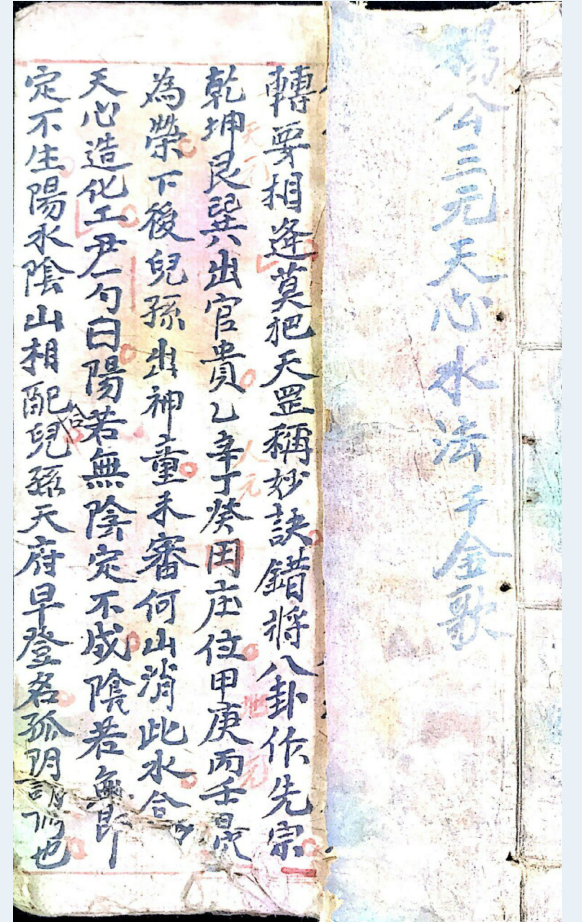 楊公三元天心水法千金歌
轉要相逢莫把天罡稱妙訣錯將八卦作先宗
乾坤艮巽出官貴乙辛丁癸田庄位甲庚丙壬
為榮下後兒孫出神童未審何山消此水合
天心造化工尹勺曰陽若無陰定不成陰若無即
定不生陽水陰山相配合兒孫天府早登名孤阴也
天元
人元
地元